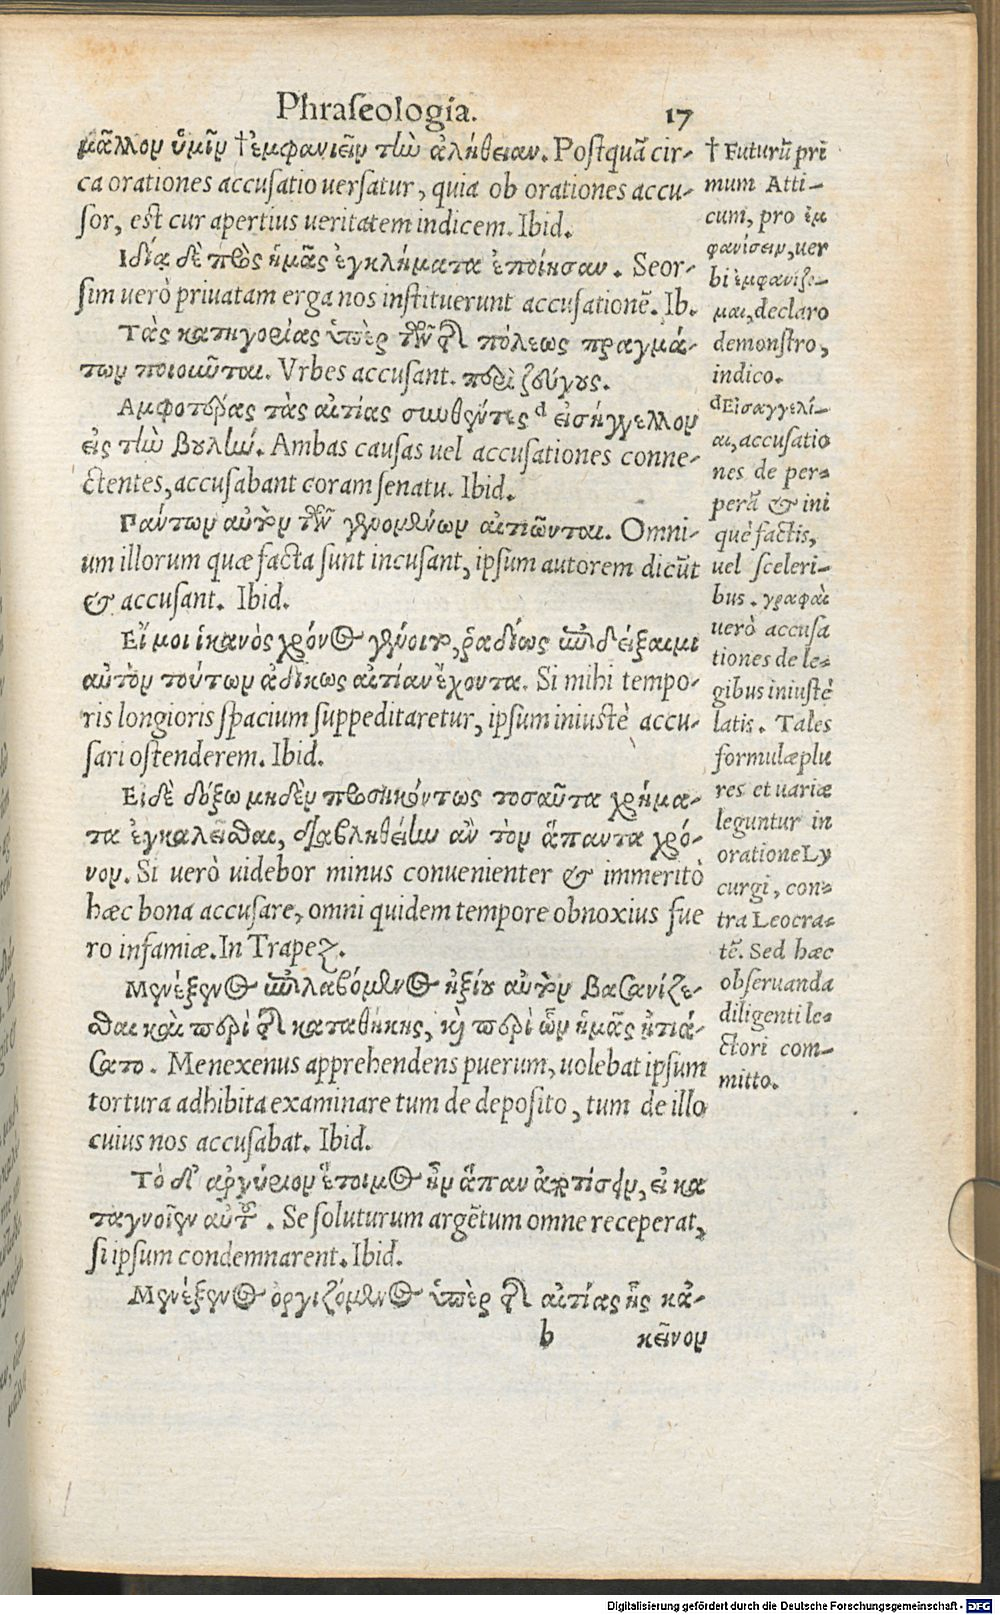 Phraſeologia. 17
μᾶλλον ὑμῖν †ἐμφανιεῖν τὴν ἀλήθειαν. Poſtquã cir-
ca orationes accuſatio uerſatur, quia ob orationes accu-
ſor, eſt cur apertius ueritatem indicem. Ibid.
Ιδίᾳ δὲ πρὸς ἡμᾶς ἐγκλήματα ἐποίησαν. Seor-
ſim uerò priuatam erga nos inſtituerunt accuſationẽ. Ib.
Τὰς κατηγορίας ὑπὲρ τῶν τῆς πόλεως πραγμά-
των ποιοῦνται. Vrbes accuſant. περὶ ζεύγους.
Αμφοτέρας τὰς αἰτίας συνθέντες ᵈ εἰσήγγελλον
εἰς τὴν βουλήν. Ambas cauſas uel accuſationes conne-
ctentes, accuſabant coram ſenatu. Ibid.
Πάντων αὐτὸν τῶν γενομένων αἰτιῶνται. Omni-
um illorum quæ facta ſunt incuſant, ipſum autorem dicũt
& accuſant. Ibid.
Εἴ μοι ἱκανὸς χρόνος γένοιτο, ῥαδίως ἐπιδείξαιμι
αὐτὸν τούτων ἀδίκως αἰτίαν ἔχοντα. Si mihi tempo-
ris longioris ſpacium ſuppeditaretur, ipſum iniuſtè accu-
ſari oſtenderem. Ibid.
Ει δὲ δόξω μηδὲν προσηκόντως τοσαῦτα χρήμα-
τα ἐγκαλεῖσθαι, διαβληθείην ἂν τὸν ἅπαντα χρό-
νον. Si uerò uidebor minus conuenienter & immeritò
hæc bona accuſare, omni quidem tempore obnoxius fue
ro infamiæ. In Trapez.
Μενέξενος ἐπιλαβόμενος ἠξίου αὐτὸν βασανίζε-
σθαι καὶ περὶ τῆς καταθήκης, καὶ περὶ ὧν ἡμᾶς ᾐτιά-
σατο. Menexenus apprehendens puerum, uolebat ipſum
tortura adhibita examinare tum de depoſito, tum de illo
cuius nos accuſabat. Ibid.
Τὸ δ' ἀργύριον ἕτοιμος ἦν ἅπαν ἀποτίσειν, εἰ κα
ταγνοῖεν αὐτοῦ. Se ſoluturum argẽtum omne receperat,
ſi ipſum condemnarent. Ibid.
Μενέξενος ὀργιζόμενος ὑπὲρ τῆς αἰτίας ἧς κἀ-
b κεῖνον
† Futurũ pri
mum Atti-
cum, pro ἐμ
φανίσειν, uer
bi ἐμφανίζο-
μαι, declaro
demonſtro,
indico.
ᵈ Εἰσαγγελί-
αι, accuſatio
nes de per-
perã & ini
què factis,
uel ſceleri-
bus. γραφαὶ
uerò accuſa
tiones de le-
gibus iniuſtè
latis. Tales
formulæ plu
res et uariæ
leguntur in
oratione Ly
curgi, con-
tra Leocra-
tẽ. Sed hæc
obſeruanda
diligenti le-
ctori com-
mitto.
Digitalisierung gefördert durch die Deutsche Forschungsgemeinschaft - DFG